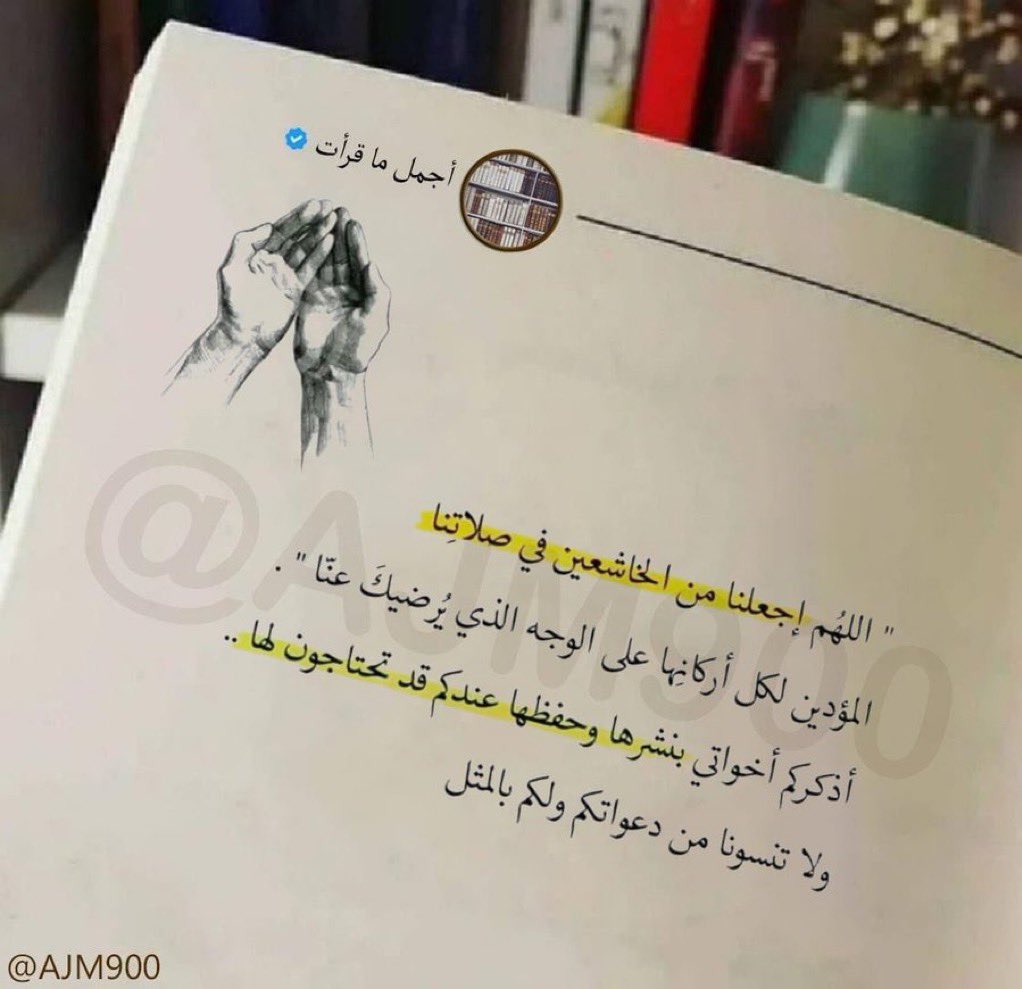 أجمل ما قرأت
" اللهُم إجعلنا من الخاشعين في صلاتِنا
المؤدين لكل أركانِها على الوجه الذي يُرضيكَ عنّا " .
أذكركم أخواتي بنشرها وحفظها عندكم قد تحتاجون لها ..
ولا تنسونا من دعواتكم ولكم بالمثل
@AJM900
@AJM900